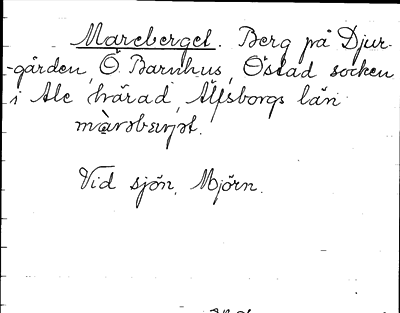 Mareberget. Berg på Djur-
-gården, Ö. Barnhus, Östad socken
i Ale härad, Älfsborgs län.
Vid sjön, Mjörn.